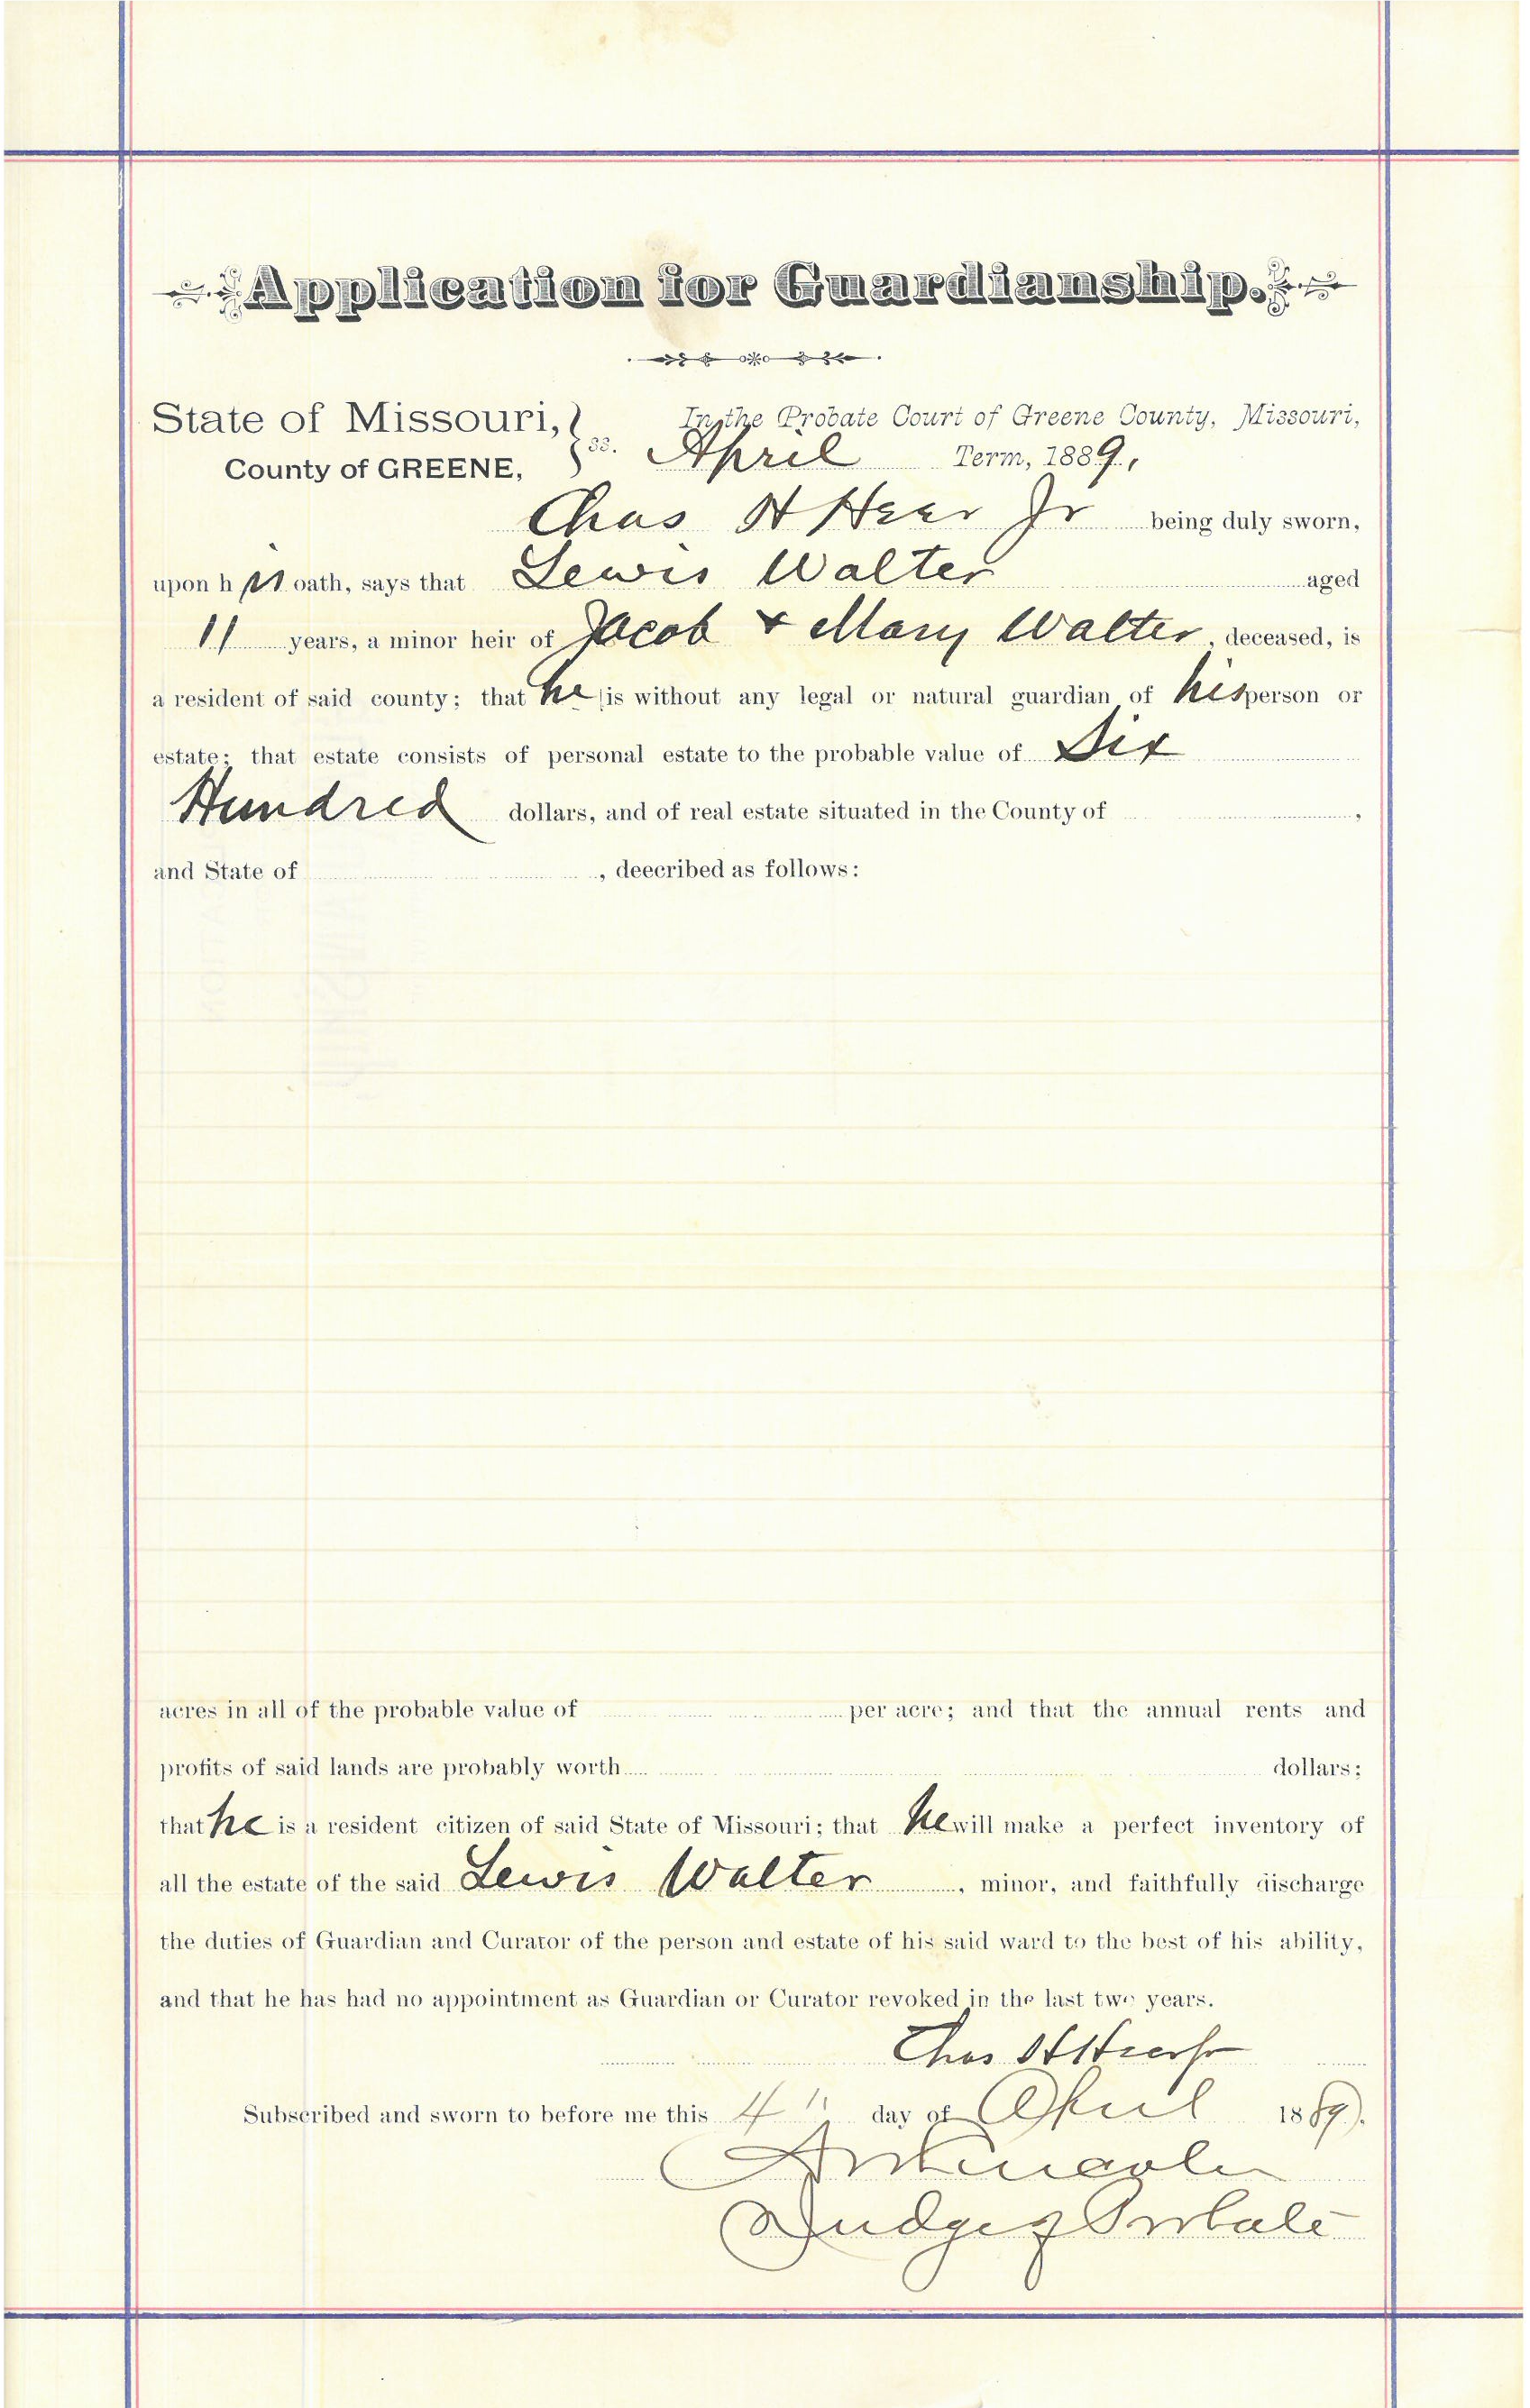 Application for Guardianship.
State of Missouri, } ss. In the Probate Court of Greene County, Missouri,
County of GREENE, April Term, 1889,
Chas H Heer Jr being duly sworn,
upon his oath, says that Lewis Walter aged
11 years, a minor heir of Jacob & Mary Walter, deceased, is
a resident of said county; that he is without any legal or natural guardian of his person or
estate; that estate consists of personal estate to the probable value of Six
Hundred dollars, and of real estate situated in the County of ,
and State of , deecribed as follows:
acres in all of the probable value of per acre; and that the annual rents and
profits of said lands are probably worth dollars;
that he is a resident citizen of said State of Missouri; that he will make a perfect inventory of
all the estate of the said Lewis Walter, minor, and faithfully discharge
the duties of Guardian and Curator of the person and estate of his said ward to the best of his ability,
and that he has had no appointment as Guardian or Curator revoked in the last two years.
Chas H Heer Jr
Subscribed and sworn to before me this 4" day of April 1889.
Judge of Probate